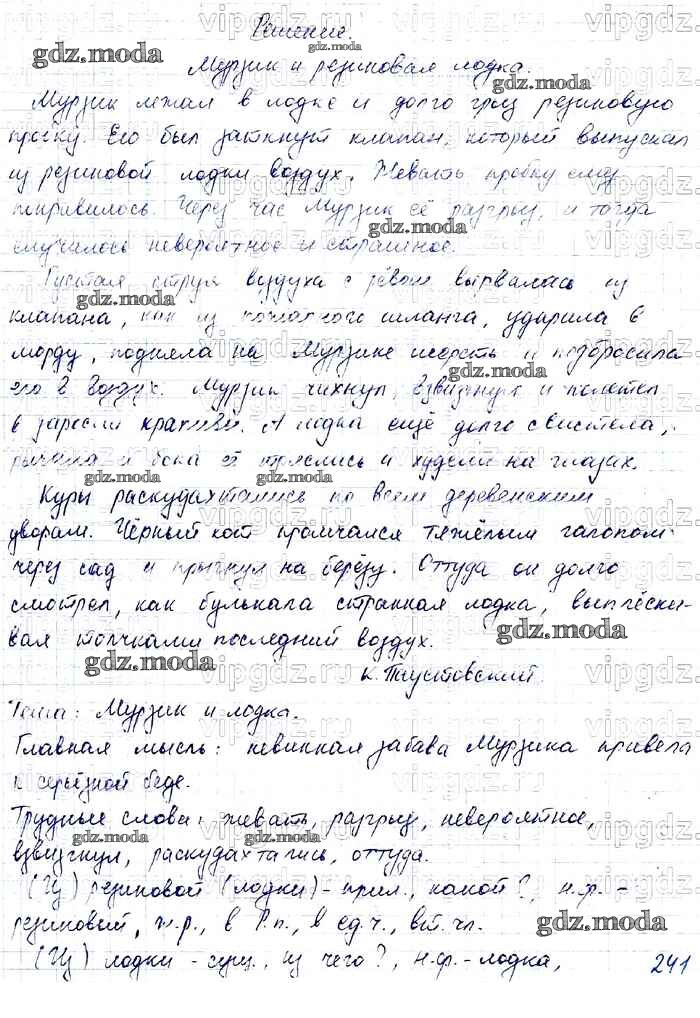 Решение.
Мурзик и резиновая лодка.
Мурзик лежал в лодке и долго грыз резиновую
пробку. Ею был заткнут клапан, который выпускал
из резиновой лодки воздух. Жевать пробку ему
понравилось. Через час Мурзик её разгрыз, и тогда
случилось невероятное и страшное.
Густая струя воздуха с рёвом вырвалась из
клапана, как из пожарного шланга, ударила в
морду, подняла на Мурзике шерсть и подбросила
его в воздух. Мурзик чихнул, взвизгнул и полетел
в заросли крапивы. А лодка ещё долго свистела,
рычала и бока её тряслись и худели на глазах.
Куры раскудахтались по всем деревенским
дворам. Чёрный кот промчался тяжёлым галопом
через сад и прыгнул на берёзу. Оттуда он долго
смотрел, как булькала странная лодка, выплёски-
вая толчками последний воздух.
К. Паустовский.
Тема: Мурзик и лодка.
Главная мысль: невинная забава Мурзика привела
к серьёзной беде.
Трудные слова: жевать, разгрыз, невероятное,
взвизгнул, раскудахтались, оттуда.
(Из) резиновой (лодки) - прил., какой?, н.ф.-
резиновый, ж.р., в Р.п., в ед.ч., вт. чл.
(Из) лодки - сущ., из чего?, н.ф.- лодка,
241
gdz.moda
vipgdz.ru